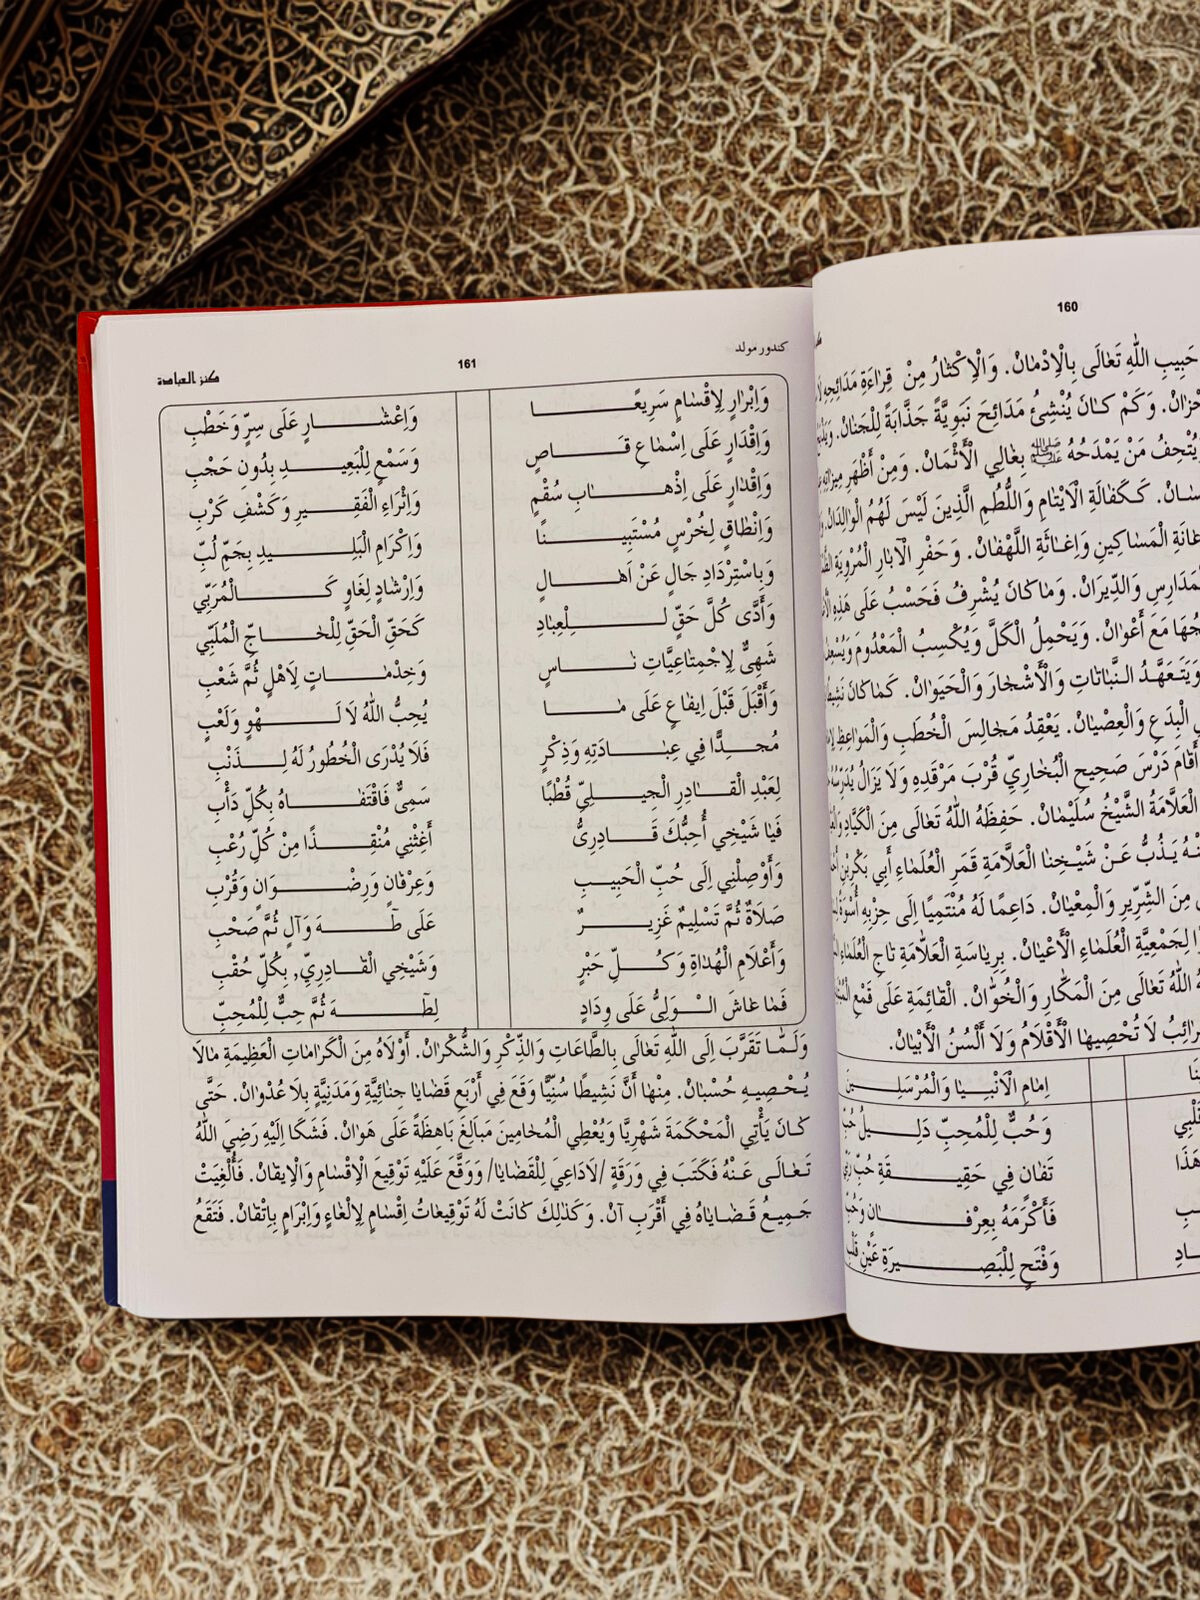 160
حَبِيبِ اللهِ تَعَالَى بِالْاِدْمَانْ. وَالْاِكْثَارُ مِنْ قِرَاءَةِ مَدَائِحِهِ
وَكَمْ كَانَ يُنْشِئُ مَدَائِحَ نَبَوِيَّةً جَذَّابَةً لِلْجَنَانْ.
يُتْحِفُ مَنْ يَمْدَحُهُ ﷺ بِغَالِي الْأَثْمَانْ. وَمِنْ أَظْهَرِ
كَكَفَالَةِ الْاَيْتَامِ وَاللُّطُمِ الَّذِينَ لَيْسَ لَهُمُ الْوَالِدَانْ.
الْمَسَاكِينِ وَاِغَاثَةِ اللَّهْفَانْ. وَحَفْرِ الْآبَارِ الْمُرْوِيَةِ
وَالدِّيرَانْ. وَمَا كَانَ يُشْرِفُ فَحَسْبُ عَلَى هَذِهِ
مَعَ أَعْوَانْ. وَيَحْمِلُ الْكَلَّ وَيُكْسِبُ الْمَعْدُومَ
وَيَتَعَهَّدُ النَّبَاتَاتِ وَالْأَشْجَارَ وَالْحَيَوَانْ. كَمَا كَانَ
الْبِدَعِ وَالْعِصْيَانْ. يَعْقِدُ مَجَالِسَ الْخُطَبِ وَالْمَوَاعِظِ
أَقَامَ دَرْسَ صَحِيحِ الْبُخَارِيِّ قُرْبَ مَرْقَدِهِ وَلَا يَزَالُ
الْعَلَّامَةُ الشَّيْخُ سُلَيْمَانْ. حَفِظَهُ اللهُ تَعَالَى مِنَ الْكَيَّادِ
يَذُبُّ عَنْ شَيْخِنَا الْعَلَّامَةِ قَمَرِ الْعُلَمَاءِ أَبِي بَكْرِ
مِنَ الشِّرِّيرِ وَالْمِعْيَانْ. دَاعِمًا لَهُ مُنْتَمِيًا إِلَى حِزْبِهِ
لِجَمْعِيَّةِ الْعُلَمَاءِ الْأَعْيَانْ. بِرِيَاسَةِ الْعَلَّامَةِ تَاجِ الْعُلَمَاءِ
اللهُ تَعَالَى مِنَ الْمَكَّارِ وَالْخُوَّانْ. الْقَائِمَةِ عَلَى قَمْعِ
لَا تُحْصِيهَا الْأَقْلَامُ وَلَا أَلْسُنُ الْأَبْيَانْ.
اِمَامِ الْاَنْبِيَا وَالْمُرْسَلِينَ
وَحُبٌّ لِلْمُحِبِّ دَلِيلُ
تَفَانٍ فِي حَقِيقَةِ
فَأَكْرَمَهُ بِعِرْفَانٍ
وَفَتْحٍ لِلْبَصِيرَةِ عَيْنِ قَلْبٍ
كندور مولد 161 كنز العبادة
وَاِبْرَارٍ لِاِقْسَامٍ سَرِيعًا وَاِعْشَارٍ عَلَى سِرٍّ وَخَطْبِ
وَاِقْدَارٍ عَلَى اِسْمَاعِ قَاصٍ وَسَمْعٍ لِلْبَعِيدِ بِدُونِ حَجْبِ
وَاِقْدَارٍ عَلَى اِذْهَابِ سُقْمٍ وَاِثْرَاءِ الْفَقِيرِ وَكَشْفِ كَرْبِ
وَاِنْطَاقٍ لِخُرْسٍ مُسْتَبِينًا وَاِكْرَامِ الْبَلِيدِ بِجَمِّ لُبِّ
وَبِاسْتِرْدَادِ جَالٍ عَنْ اَهَالٍ وَاِرْشَادٍ لِغَاوٍ كَالْمُرَبِّي
وَأَدَّى كُلَّ حَقٍّ لِلْعِبَادِ كَحَقِّ الْحَقِّ لِلْحَاجِّ الْمُلَبِّي
شَهِىٌّ لِاجْتِمَاعِيَّاتِ نَاسٍ وَخِدْمَاتٍ لِاَهْلٍ ثُمَّ شَعْبِ
وَأَقْبَلَ قَبْلَ اِيفَاعٍ عَلَى مَا يُحِبُّ اللهُ لَا لَهْوٍ وَلَعْبِ
مُجِدًّا فِي عِبَادَتِهِ وَذِكْرٍ فَلَا يُدْرَى الْخُطُورُ لَهُ لِذَنْبِ
لِعَبْدِ الْقَادِرِ الْجِيلِيِّ قُطْبًا سَمِىٌّ فَاقْتَفَاهُ بِكُلِّ دَأْبِ
فَيَا شَيْخِي أُحِبُّكَ قَادِرِىُّ أَغِثْنِي مُنْقِذًا مِنْ كُلِّ رُعْبِ
وَأَوْصِلْنِي اِلَى حُبِّ الْحَبِيبِ وَعِرْفَانٍ وَرِضْوَانٍ وَقُرْبِ
صَلَاةٌ ثُمَّ تَسْلِيمٌ غَزِيرٌ عَلَى طَهَ وَآلٍ ثُمَّ صَحْبِ
وَأَعْلَامِ الْهُدَاةِ وَكُلِّ حَبْرٍ وَشَيْخِي الْقَادِرِيِّ, بِكُلِّ حُقْبِ
فَمَا عَاشَ الْوَلِىُّ عَلَى وِدَادٍ لِطَهَ ثُمَّ حِبٌّ لِلْمُحِبِّ
وَلَمَّا تَقَرَّبَ اِلَى اللهِ تَعَالَى بِالطَّاعَاتِ وَالذِّكْرِ وَالشُّكْرَانْ. أَوْلَاهُ مِنَ الْكَرَامَاتِ الْعَظِيمَةِ مَالَا
يُحْصِيهِ حُسْبَانْ. مِنْهَا أَنَّ نَشِيطًا سُنِّيًّا وَقَعَ فِي أَرْبَعِ قَضَايَا جِنَائِيَّةٍ وَمَدَنِيَّةٍ بِلَا عُدْوَانْ. حَتَّى
كَانَ يَأْتِي الْمَحْكَمَةَ شَهْرِيًّا وَيُعْطِي الْمُحَامِينَ مَبَالِغَ بَاهِظَةً عَلَى هَوَانْ. فَشَكَا اِلَيْهِ رَضِيَ اللهُ
تَعَالَى عَنْهُ فَكَتَبَ فِي وَرَقَةٍ /لَادَاعِيَ لِلْقَضَايَا/ وَوَقَّعَ عَلَيْهِ تَوْقِيعَ الْاِقْسَامِ وَالْاِيقَانْ. فَأُلْغِيَتْ
جَمِيعُ قَضَايَاهُ فِي أَقْرَبِ آنْ. وَكَذَلِكَ كَانَتْ لَهُ تَوْقِيعَاتُ اِقْسَامٍ لِاِلْغَاءٍ وَاِبْرَامٍ بِاِتْقَانْ. فَتَقَعُ